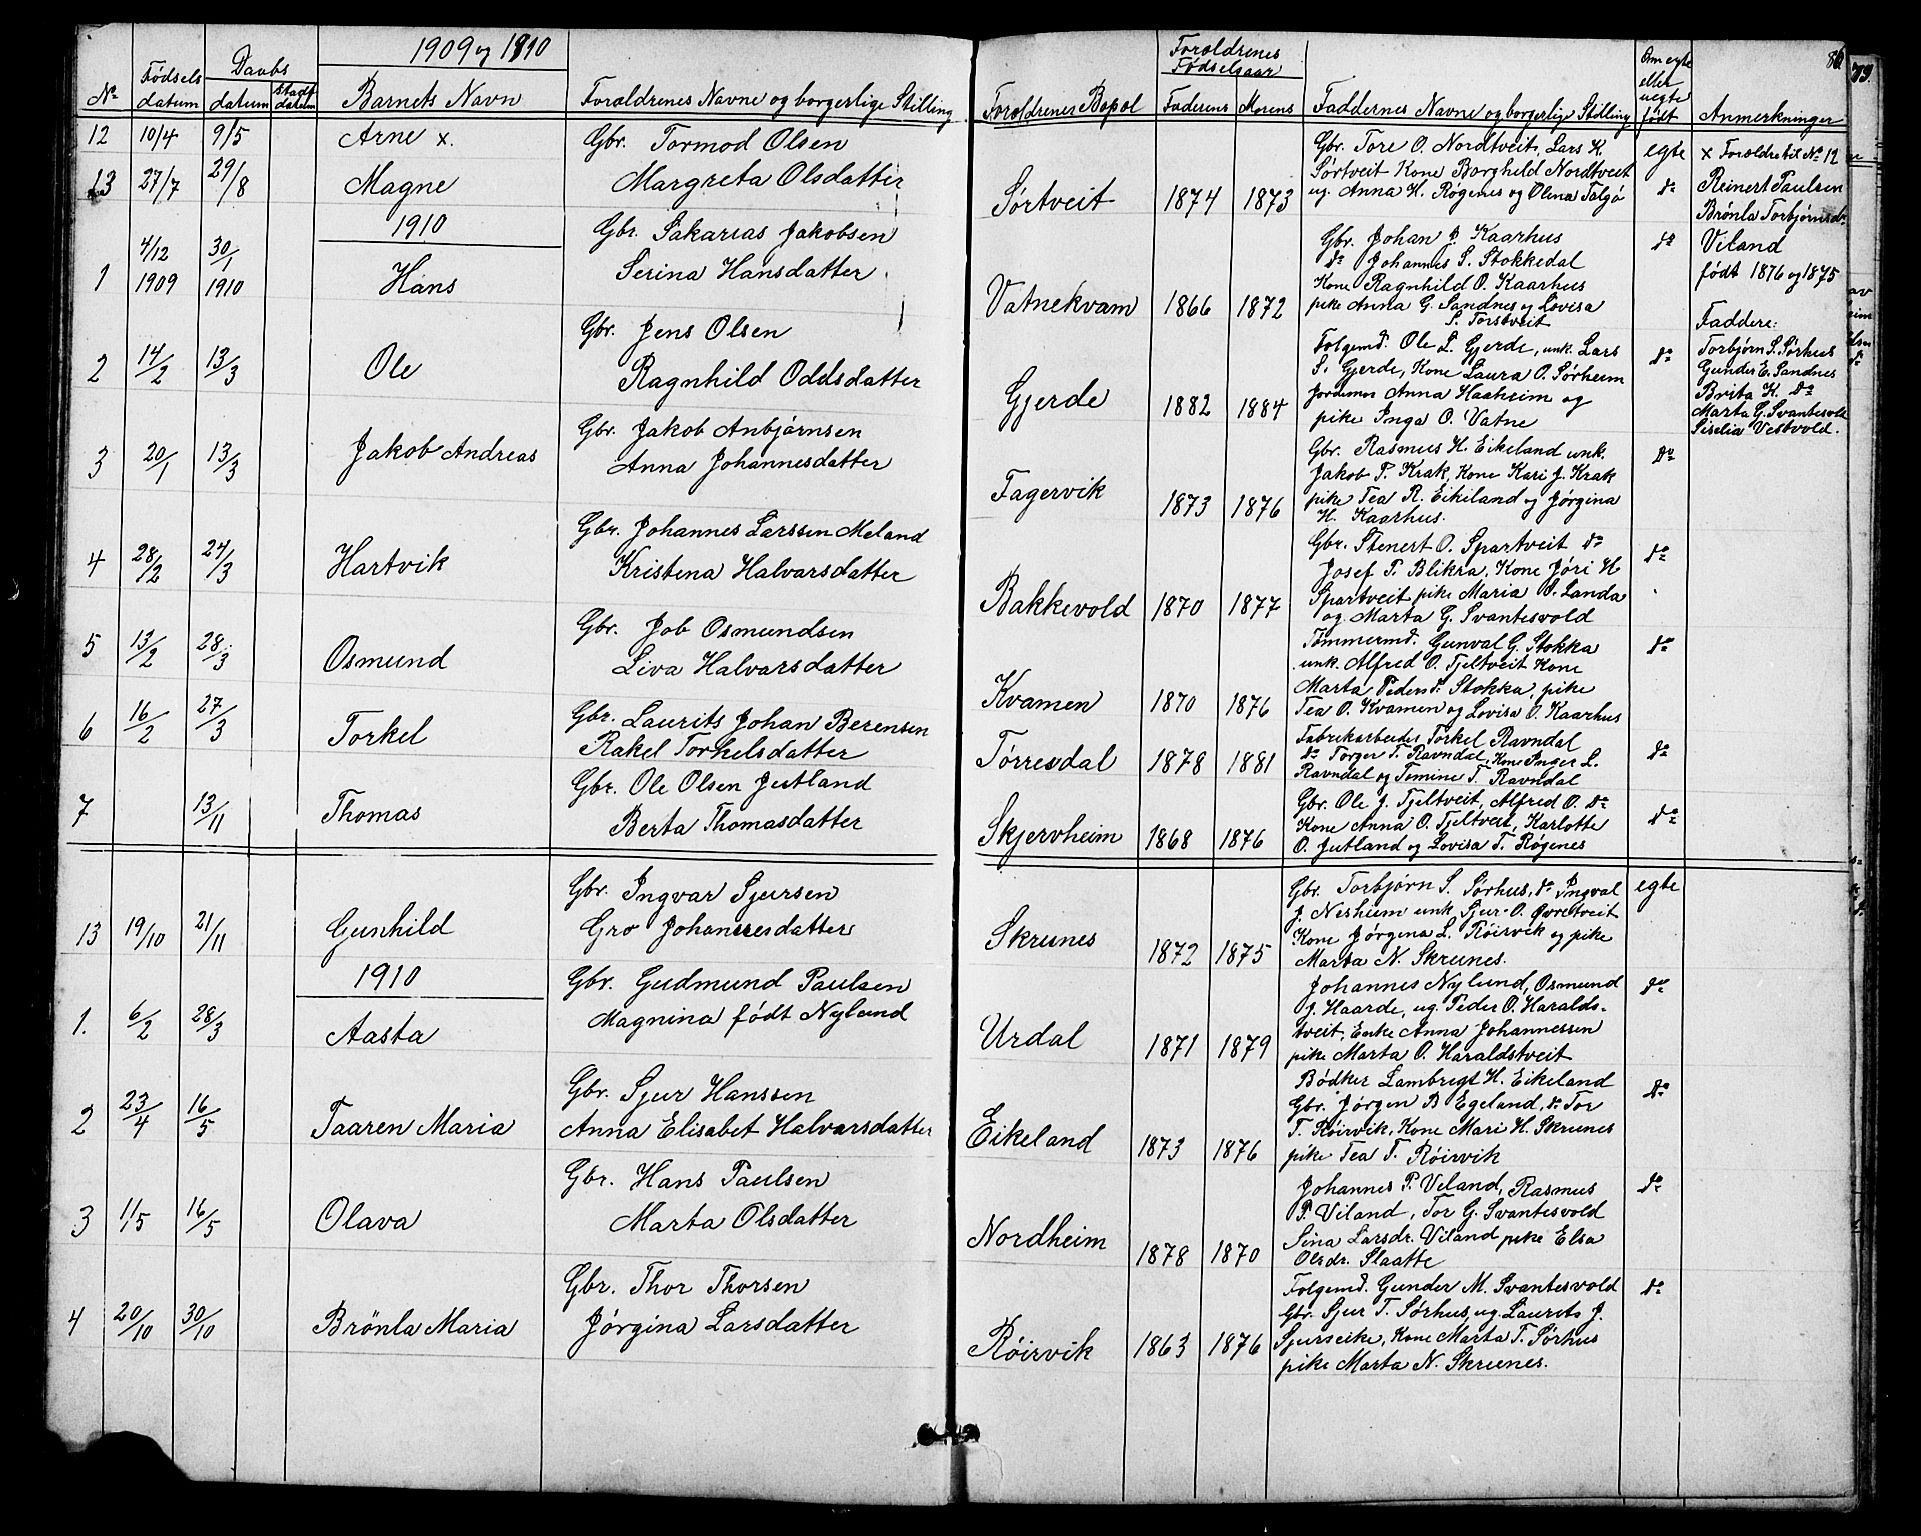 1909 og 1910
No
Fødsels
datum
Daabs
datum
Stadf.
datum
Barnets Navn
Forældrenes Navne og borgerlige Stilling
12 10/4 9/5 Arne x. Gbr. Tormod Olsen
13 27/7 29/8 Magne Margreta Olsdatter
1910
1 4/12 1909 30/1 1910 Hans Gbr. Sakarias Jakobsen
Serina Hansdatter
2 14/2 13/3 Ole Gbr. Jens Olsen
Ragnhild Oddsdatter
3 20/1 13/3 Jakob Andreas Gbr. Jakob Anbjørnsen
Anna Johannesdatter
4 28/2 24/3 Hartvik Gbr. Johannes Larssen Meland
Kristena Halvarsdatter
5 13/2 28/3 Osmund Gbr. Job Osmundsen
Liva Halvarsdatter
6 16/2 27/3 Torkel Gbr. Laurits Johan Berensen
Rakel Torkelsdatter
7 13/11 Thomas Gbr. Ole Olsen Jutland
Berta Thomasdatter
13 19/10 21/11 Gunhild Gbr. Ingvar Sjursen
Gro Johannesdatter
1910
1. 6/2 28/3 Aasta Gbr. Gudmund Paulsen
Magnina født Nylund
2 23/4 16/5 Taaren Maria Gbr. Sjur Hanssen
Anna Elisabet Halvarsdatter
3 1/5 16/5 Olava Gbr. Hans Paulsen
Marta Olsdatter
4 20/10 30/10 Brönla Maria Gbr. Thor Thorsen
Jörgina Larsdatter
86
79.
Forældrenes Bopæl
Forældrenes
Fødselsaar
Faderens Morens
Faddernes Navne og borgerlige Stilling
Om egte
eller
uegte
født
Anmerkninger
Sørtveit 1874 1873
Gbr. Tore O. Nordtveit, Lars K.
Sørtveit Kone Borghild Nordtveit
ug. Anna H. Røgenes og Olena Talgø
egte
do
Vatnekvam 1866 1872
Gbr. Johan J. Kaarhus
do Johannes S. Stokkedal
Kone Ragnhild O. Kaarhus
pike Anna G. Sandnes og Lovisa
S. Torstveit
do
Gjerde 1882 1884
Folgemd. Ole L. Gjerde, unk. Lars
S. Gjerde, Kone Laura O. Sørheim
Jordmor Anna Haaheim og
pike Inga O. Vatne
do
Fagervik 1873 1876
Gbr. Rasmus H. Eikeland unk.
Jakob P. Krak, Kone Kari J. Krak
pike Tea R. Eikiland og Jørgina
H. Kaarhus.
do
Bakkevold 1870 1877
Gbr. Stenert O. Spartveit do
Josef P. Blikra, Kone Jöri H.
Spartveit pike Maria O. Landa
og Marta G. Svantesvold
do
Kvamen 1870 1876
Tømmermd. Gunval G. Stokka
unk. Alfred O. Tjeltveit Kone
Marta Pedersd. Stokka, pike
Tea O. Kvamen og Lovisa O. Kaarhus
do
Tørresdal 1878 1881
Fabrikarbeider Torkel Ravndal
do Torger T. Ravndal, Kone Inger L.
Ravndal og Tomine T. Ravndal
do
Skjervheim 1868 1876
Gbr. Ole J. Tjeltveit, Alfred O. do
Kone Anna O. Tjeltveit, Karlotte
O. Jutland og Lovisa T. Røgenes
do
Skrunes 1872 1875
Gbr. Torbjørn S. Sørhus, do Ingval
J. Nesheim unk. Sjur O. Øvretveit
Kone Jørgina L. Röirvik og pike
Marta N. Skrunes.
egte
Urdal 1871 1879
Johannes Nylund, Osmund
J. Haarde, ug. Peder O. Haralds-
tveit, Enke Anna Johannessen
pike Marta O. Haraldstveit
do
Eikeland 1873 1876
Bödker Lambregt H. Eikeland
Gbr. Jörgen B Egeland, do Tor
T. Röirvik, Kone Mari H. Skrunes
pike Tea T. Röirvik
do
Nordheim 1878 1870
Johannes P. Veland, Rasmus
P. Viland, Tor G. Svantesvold
Sina Larsdr. Viland pike Elsa
Olsdr. Slaatte
do
Röirvik 1863 1876
Folgemd. Gunder M. Svantesvold
Gbr. Sjur T. Sørhus, ug. Laurits J.
Sjurseike, Kone Marta T. Sørhus
pike Marta N. Skrunes.
do
x Forældre til No 12
Reinert Paulsen
Brönla Torbjørnsdr.
Viland
født 1876 og 1875
Faddere:
Torbjørn S. Sørhus
Gunder E. Sandnes
Brita K. do
Marta G. Svantesvold
Siselia Vestvold.